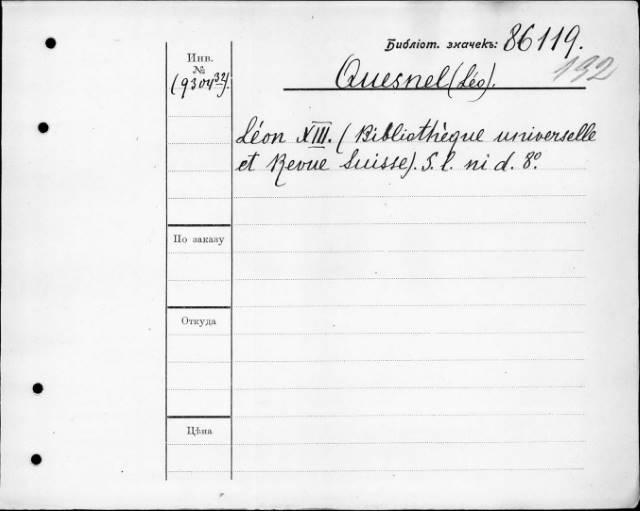 Библіот. значекъ: 86119.
132
Инв.
№
(9304³²).
Quesnel (Léo).
Léon XIII. (Bibliothèque universelle
et Revue Suisse). S. l. ni d. 8º.
По заказу
Откуда
Цѣна